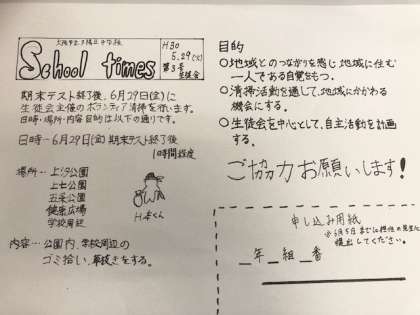 大阪市立夕陽丘中学校
School times
H30
5.29(火)
第3号
生徒会
期末テスト終了後、6月29日(金)に
生徒会主催のボランティア清掃を行います。
日時・場所・内容・目的は以下の通りです。
日時…6月29日(金)期末テスト終了後
1時間程度
場所…上汐公園
上七公園
五条公園
健康広場
学校周辺
内容…公園内、学校周辺の
ゴミ拾い、草抜きをする。
目的
○地域とのつながりを感じ地域に住む
一人である自覚をもつ。
○清掃活動を通して、地域にかかわる
機会にする。
○生徒会を中心として、自主活動を計画
する。
ご協力お願いします!
申し込み用紙
※6月5日までに担任の先生に
提出してください。
年 組 番